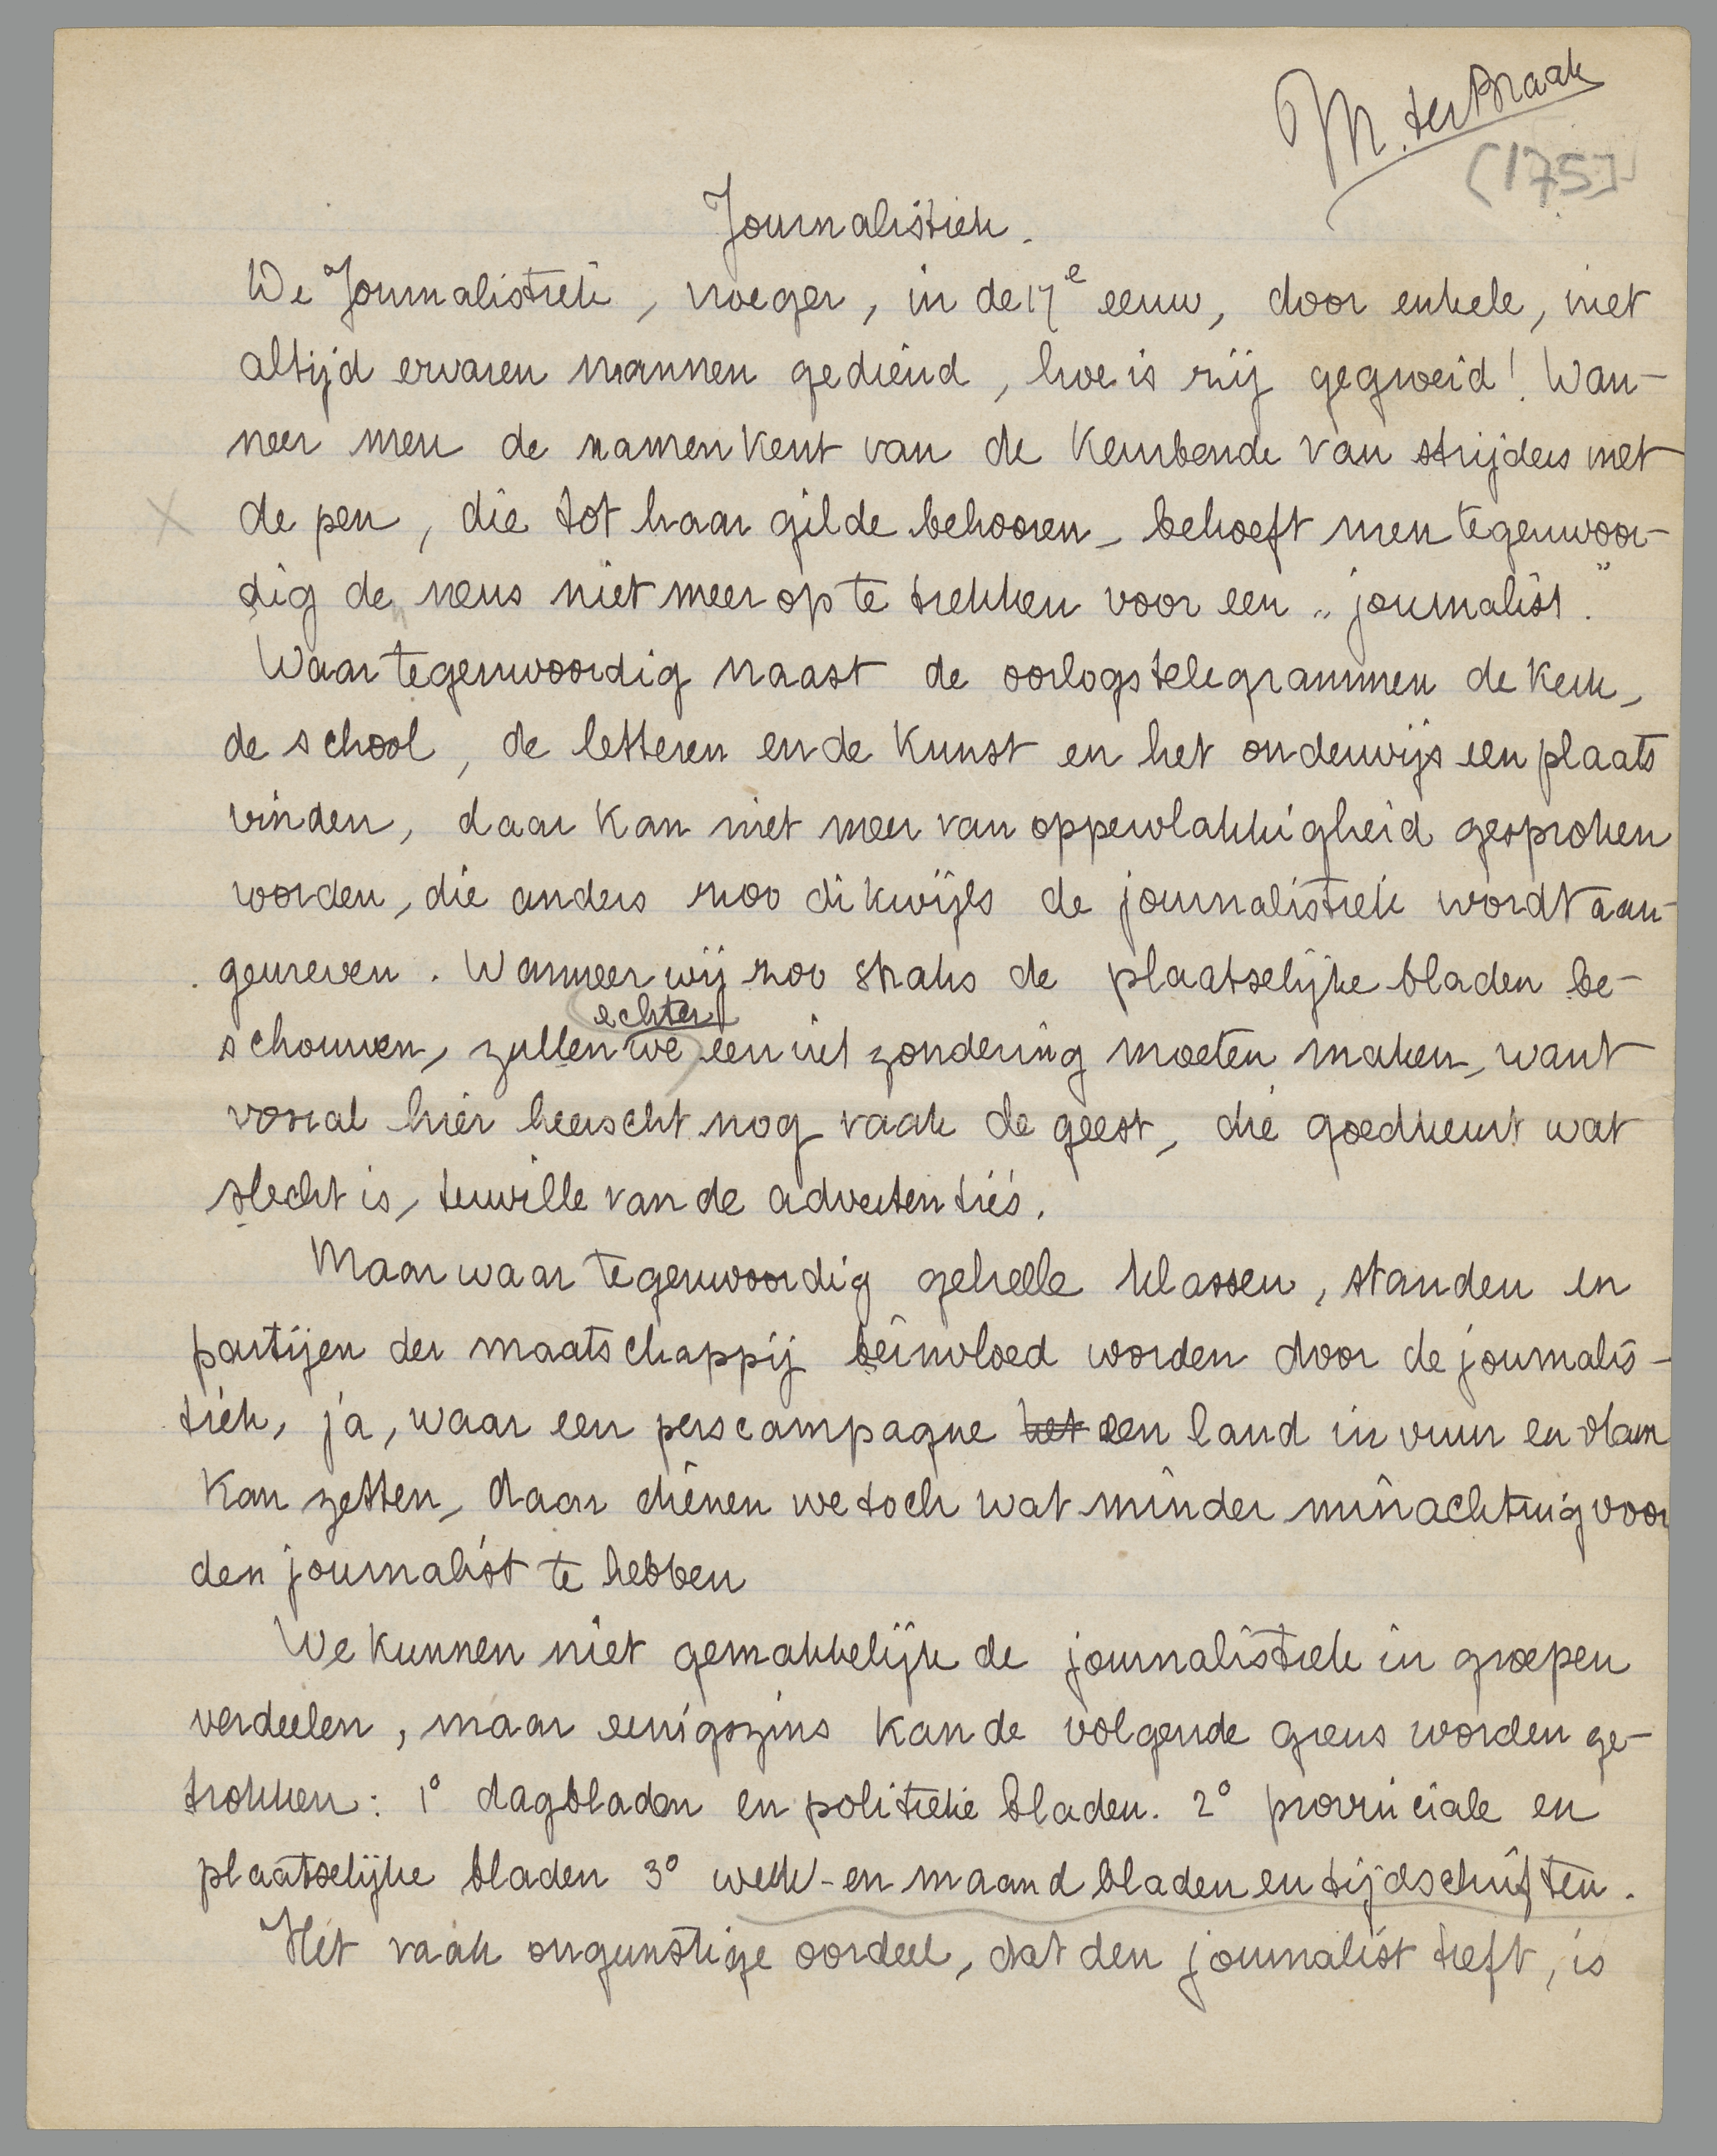 M. ter Braak
(175)
Journalistiek.
De Journalistiek, vroeger, in de 17e eeuw, door enkele, niet
altijd ervaren mannen gediend, hoe is zij gegroeid! Wan-
neer men de namen kent van de keurbende van strijders met
de pen, die tot haar gilde behooren, behoeft men tegenwoor-
dig de neus niet meer op te trekken voor een „journalist."
Waar tegenwoordig naast de oorlogstelegrammen de kerk,
de school, de letteren en de kunst en het onderwijs een plaats
vinden, daar kan niet meer van oppervlakkigheid gesproken
worden, die anders zoo dikwijls de journalistiek wordt aan-
gewreven. Wanneer wij zoo straks de plaatselijke bladen be-
echter
schouwen, zullen we een uitzondering moeten maken, want
vooral hier heerscht nog vaak de geest, die goedkeurt wat
slecht is, terwille van de advertenties.
Maar waar tegenwoordig geheele klassen, standen en
partijen der maatschappij beïnvloed worden door de journalis-
tiek, ja, waar een perscampagne het een land in vuur en vlam
kan zetten, daar dienen we toch wat minder minachting voor
den journalist te hebben
We kunnen niet gemakkelijk de journalistiek in groepen
verdeelen, maar eenigszins kan de volgende grens worden ge-
trokken: 1° dagbladen en politieke bladen. 2° provinciale en
plaatselijke bladen 3° week- en maandbladen en tijdschriften.
Het vaak ongunstige oordeel, dat den journalist treft, is